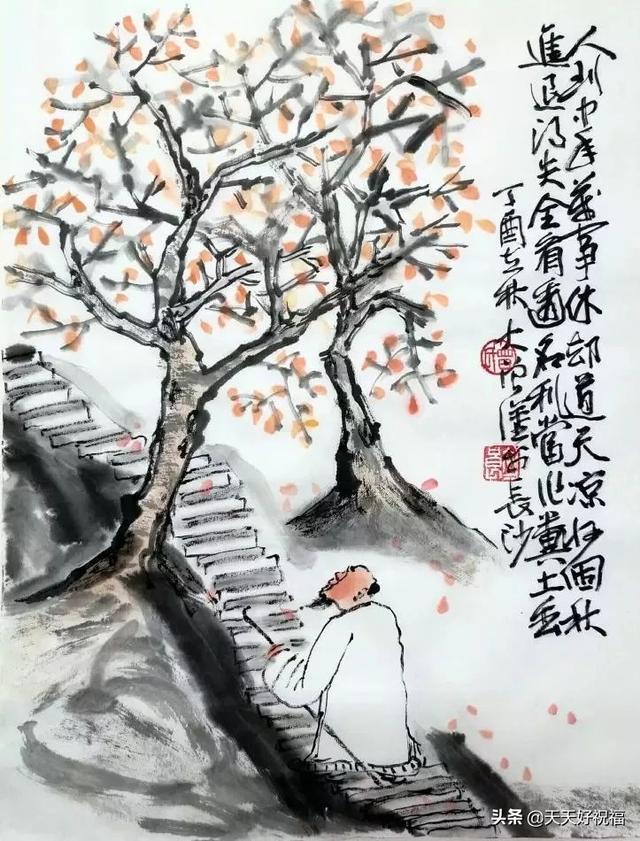 人到中年萬事休却道天凉好個秋
進退得失全看透名利當作糞土丢
丁酉立秋大 長沙
头条 @天天好祝福